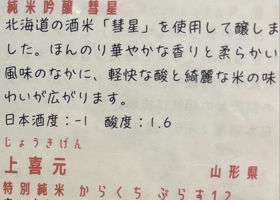 純米吟醸 彗星
北海道の酒米「彗星」を使用して醸しま
した。ほんのり華やかな香りと柔らかい
風味のなかに、軽快な酸と綺麗な米の味
わいが広がります。
日本酒度：-1　酸度：1.6
じょうきげん
上喜元　山形県
特別純米 からくち ぷらす12